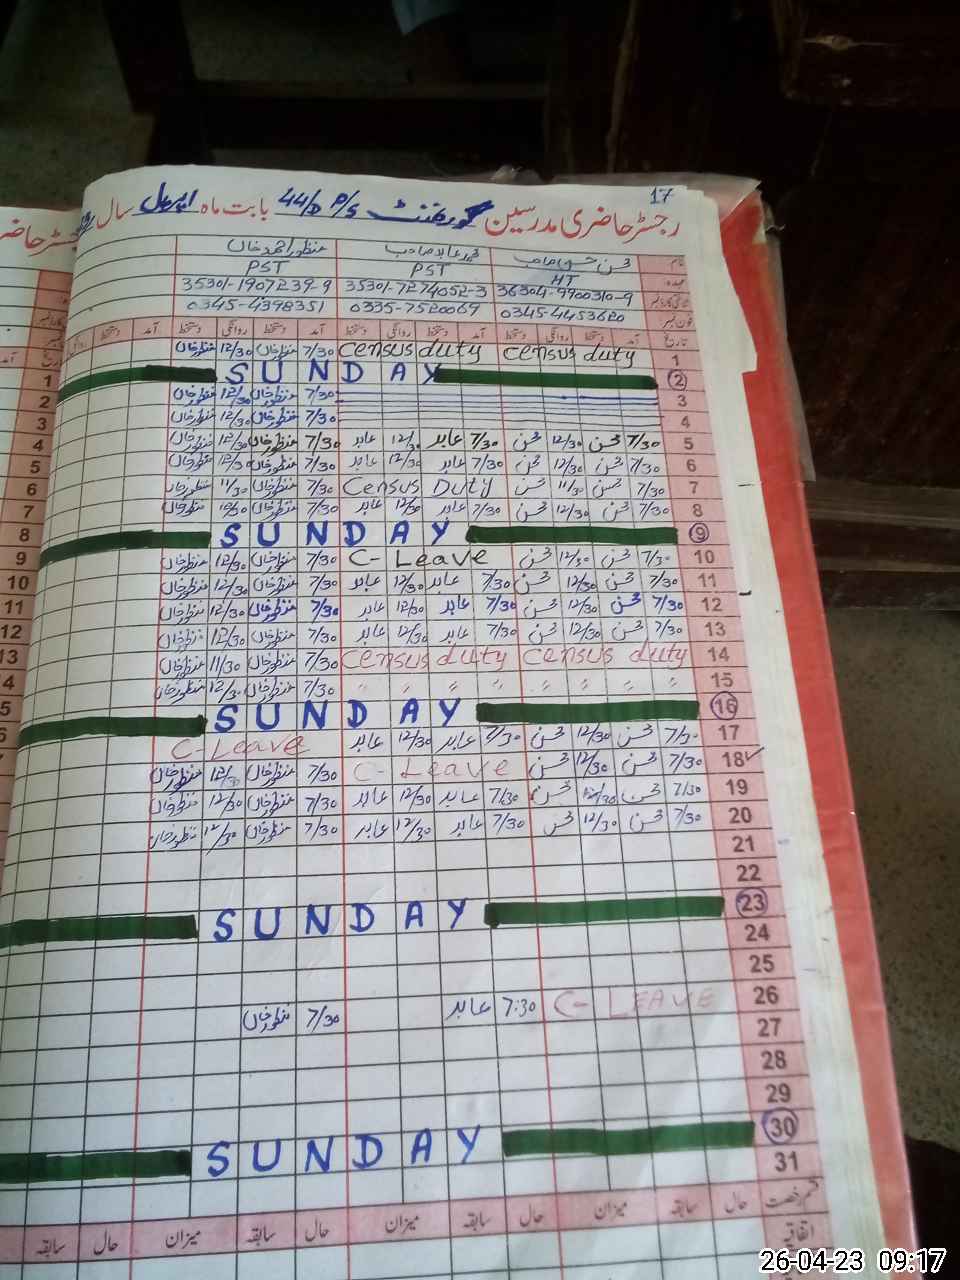 17
رجسٹر حاضری مدرسین گورنمنٹ P/S 44/D بابت ماہ اپریل سال
نام محسن صاحب محمد عابد صاحب منظور احمد خاں
عہدہ HT PST PST
36304-9900310-9 35301-7274052-3 35301-1907239-9
فون نمبر 0345-4453620 0335-7520069 0345-4398351
تاریخ آمد دستخط روانگی دستخط آمد دستخط روانگی دستخط آمد دستخط روانگی دستخط آمد دستخط
1 Census duty Census duty 7/30 منظور خاں 12/30 منظور خاں
2 SUNDAY
3 7/30 منظور خاں 12/30 منظور خاں
4 7/30 منظور خاں 12/30 منظور خاں
5 7/30 محسن 12/30 محسن 7/30 عابد 12/30 عابد 7/30 منظور خاں 12/30 منظور خاں
6 7/30 محسن 12/30 محسن 7/30 عابد 12/30 عابد 7/30 منظور خاں 12/30 منظور خاں
7 7/30 محسن 11/30 محسن Census Duty 7/30 منظور خاں 11/30 منظور خاں
8 7/30 محسن 12/30 محسن 7/30 عابد 12/30 عابد 7/30 منظور خاں منظور خاں
9 SUNDAY
10 7/30 محسن 12/30 محسن C-Leave 7/30 منظور خاں 12/30 منظور خاں
11 7/30 محسن 12/30 محسن 7/30 عابد 12/30 عابد 7/30 منظور خاں 12/30 منظور خاں
12 7/30 محسن 12/30 محسن 7/30 عابد 12/30 عابد 7/30 منظور خاں 12/30 منظور خاں
13 7/30 محسن 12/30 محسن 7/30 عابد 12/30 عابد 7/30 منظور خاں 12/30 منظور خاں
14 Census duty Census duty 7/30 منظور خاں 11/30 منظور خاں
15 〃 〃 〃 〃 〃 〃 〃 〃 7/30 منظور خاں 12/30 منظور خاں
16 SUNDAY
17 7/30 محسن 12/30 محسن 7/30 عابد 12/30 عابد C-Leave
18 ✓ 7/30 محسن 12/30 محسن C-Leave 7/30 منظور خاں 12/30 منظور خاں
19 7/30 محسن 12/30 محسن 7/30 عابد 12/30 عابد 7/30 منظور خاں 12/30 منظور خاں
20 7/30 محسن 12/30 محسن 7/30 عابد 12/30 عابد 7/30 منظور خاں 12/30 منظور خاں
21
22
23 SUNDAY
24
25
26 C-LEAVE 7:30 عابد 7/30 منظور خاں
27
28
29
30 SUNDAY
31
قسم رخصت حال سابقہ میزان حال سابقہ میزان حال سابقہ میزان حال سابقہ
اتفاقیہ
1
2
3
4
5
6
7
8
9
10
11
12
13
26-04-23 09:17